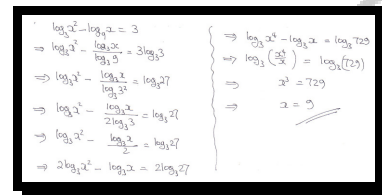 log₃x² - log₉x = 3
⇒ log₃x² - log₃x / log₃9 = 3log₃3
⇒ log₃x² - log₃x / log₃3² = log₃27
⇒ log₃x² - log₃x / 2log₃3 = log₃27
⇒ log₃x² - log₃x / 2 = log₃27
⇒ 2log₃x² - log₃x = 2log₃27
⇒ log₃x⁴ - log₃x = log₃729
⇒ log₃(x⁴/x) = log₃(729)
⇒ x³ = 729
⇒ x = 9